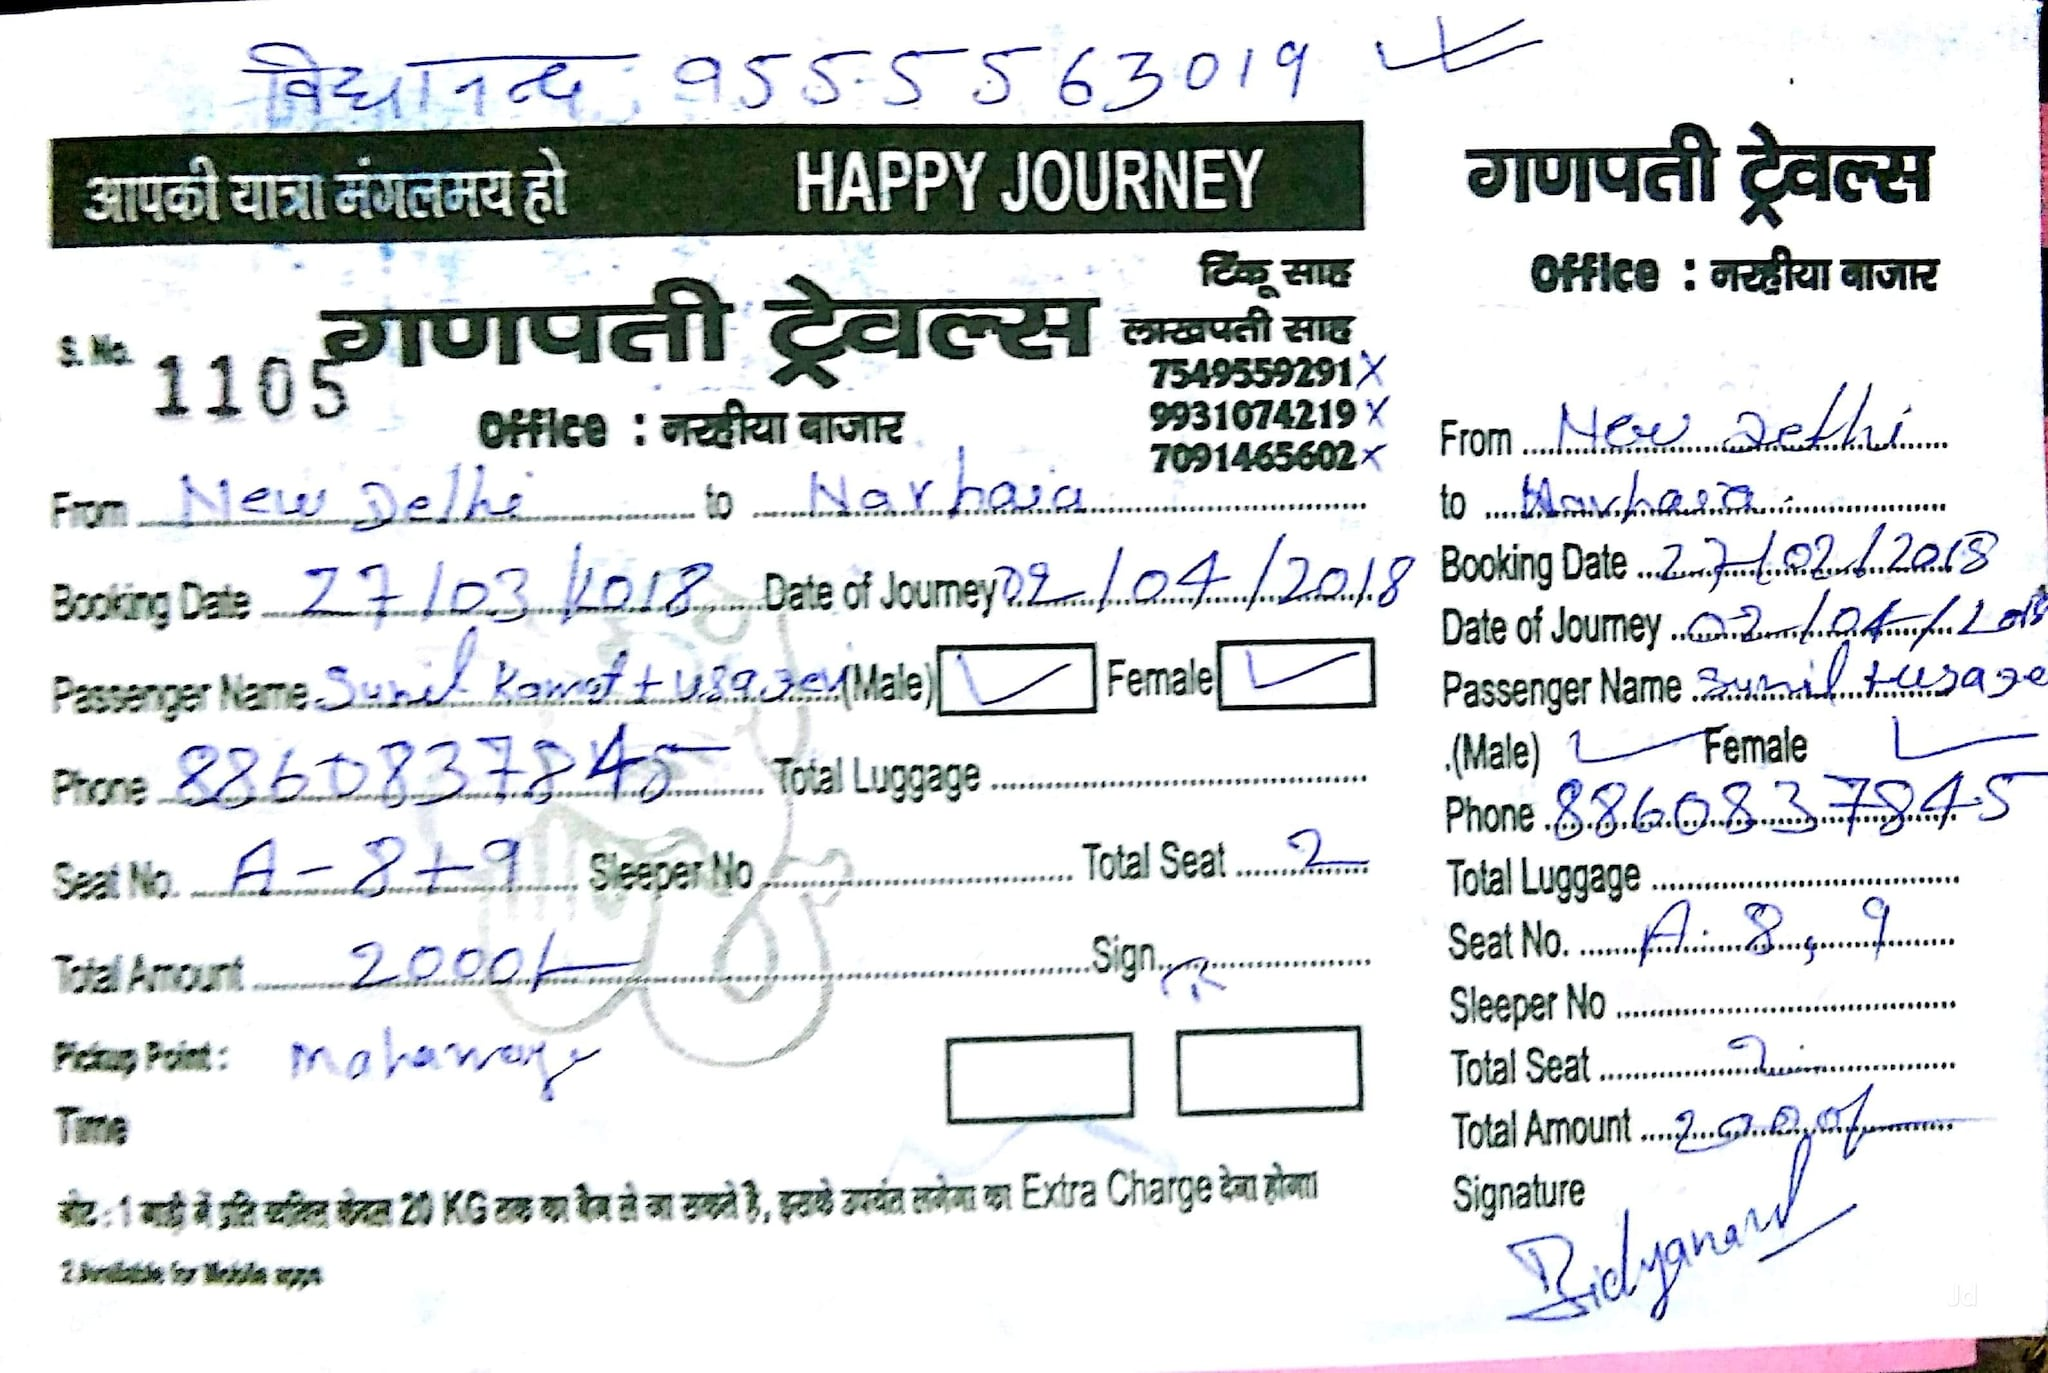 विद्यानन्द : 9555563019
आपकी यात्रा मंगलमय हो HAPPY JOURNEY
टिंकू साह
लाखपती साह
S. No. 1105 गणपती ट्रेवल्स
7549559291 X
9931074219 X
7091465602 X
Office : नरहीया बाजार
From New Delhi to Narhaia
Booking Date 27/03/2018 Date of Journey 02/04/2018
Passenger Name Sunil Kamat + (Male) ✓ Female ✓
Phone 8860837845 Total Luggage
Seat No. A-8+9 Sleeper No Total Seat 2
Total Amount 2000/- Sign
Pickup Point :
Time
नोट : 1 गाड़ी में प्रति व्यक्ति केवल 20 KG तक का बैग ले जा सकते है, इसके उपरांत लगेगा का Extra Charge देना होगा।
2 Available for Mobile apps
गणपती ट्रेवल्स
Office : नरहीया बाजार
From New Delhi
to Narhaia
Booking Date 27/02/2018
Date of Journey 02/04/2018
Passenger Name Sunil +
.(Male) ✓ Female ✓
Phone 8860837845
Total Luggage
Seat No. A. 8, 9
Sleeper No
Total Seat 2
Total Amount 2000/-
Signature
Bidyanand
Jd